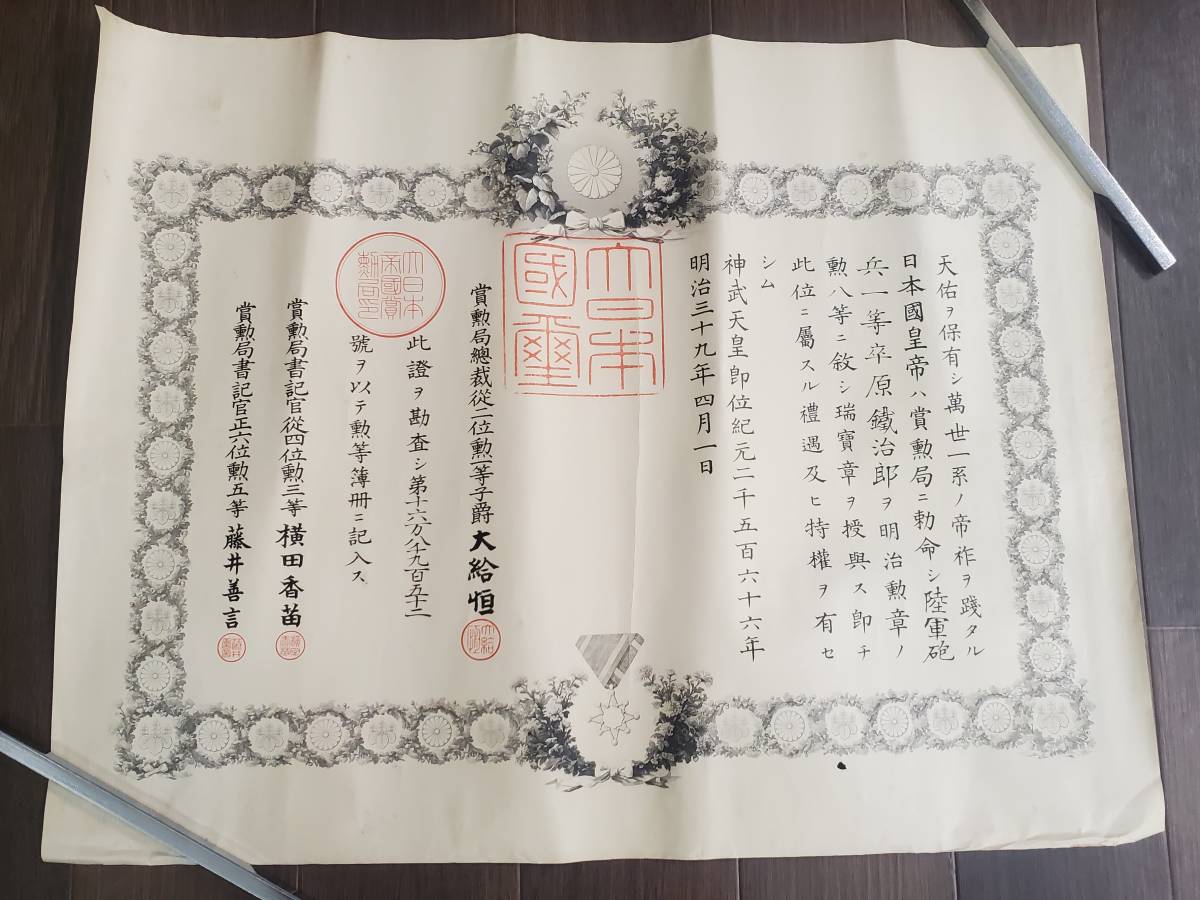 天佑ヲ保有シ萬世一系ノ帝祚ヲ踐タル
日本國皇帝ハ賞勲局ニ勅命シ陸軍砲
兵一等卒原鐵治郎ヲ明治勲章ノ
勲八等ニ敘シ瑞寶章ヲ授與ス即チ
此位ニ屬スル禮遇及ヒ特權ヲ有セ
シム
神武天皇即位紀元二千五百六十六年
明治三十九年四月一日
大日本國璽
賞勲局總裁從二位勲一等子爵大給恒
此證ヲ勘査シ第十六万八千九百五十二
號ヲ以テ勲等簿冊ニ記入ス
大日本帝國賞勲局印
賞勲局書記官從四位勲三等橫田香苗
賞勲局書記官正六位勲五等藤井善言